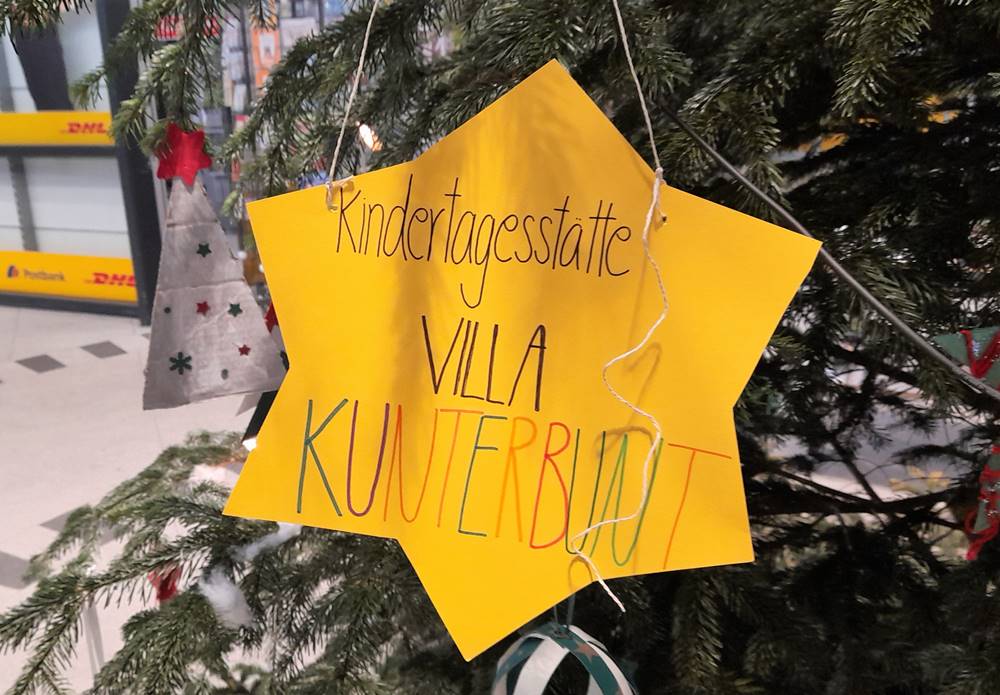 DHL
Postbank
DHL
Kindertagesstätte
VILLA
KUNTERBUNT